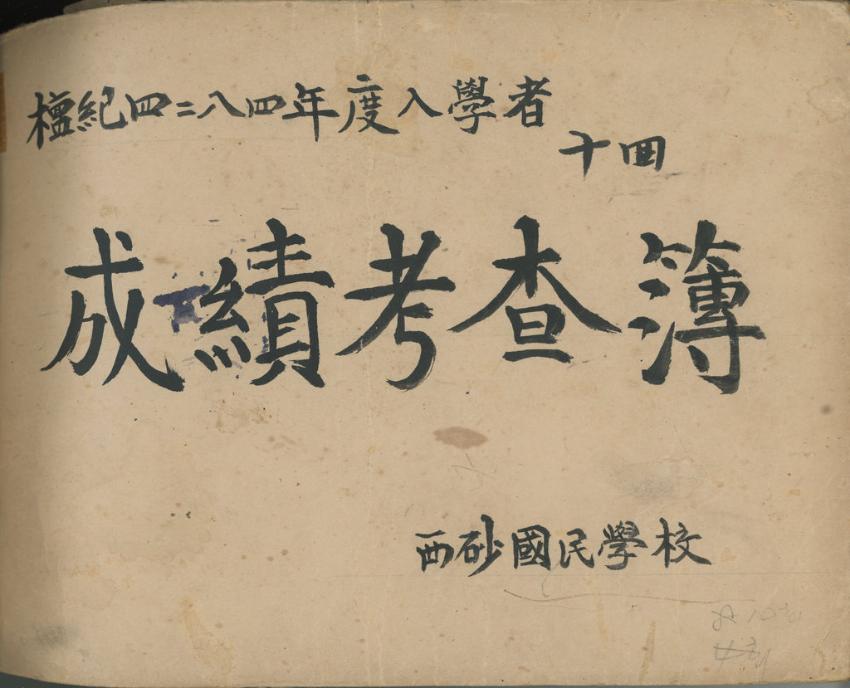 檀紀四二八四年度入學者
十四
成績考查簿
西砂國民學校